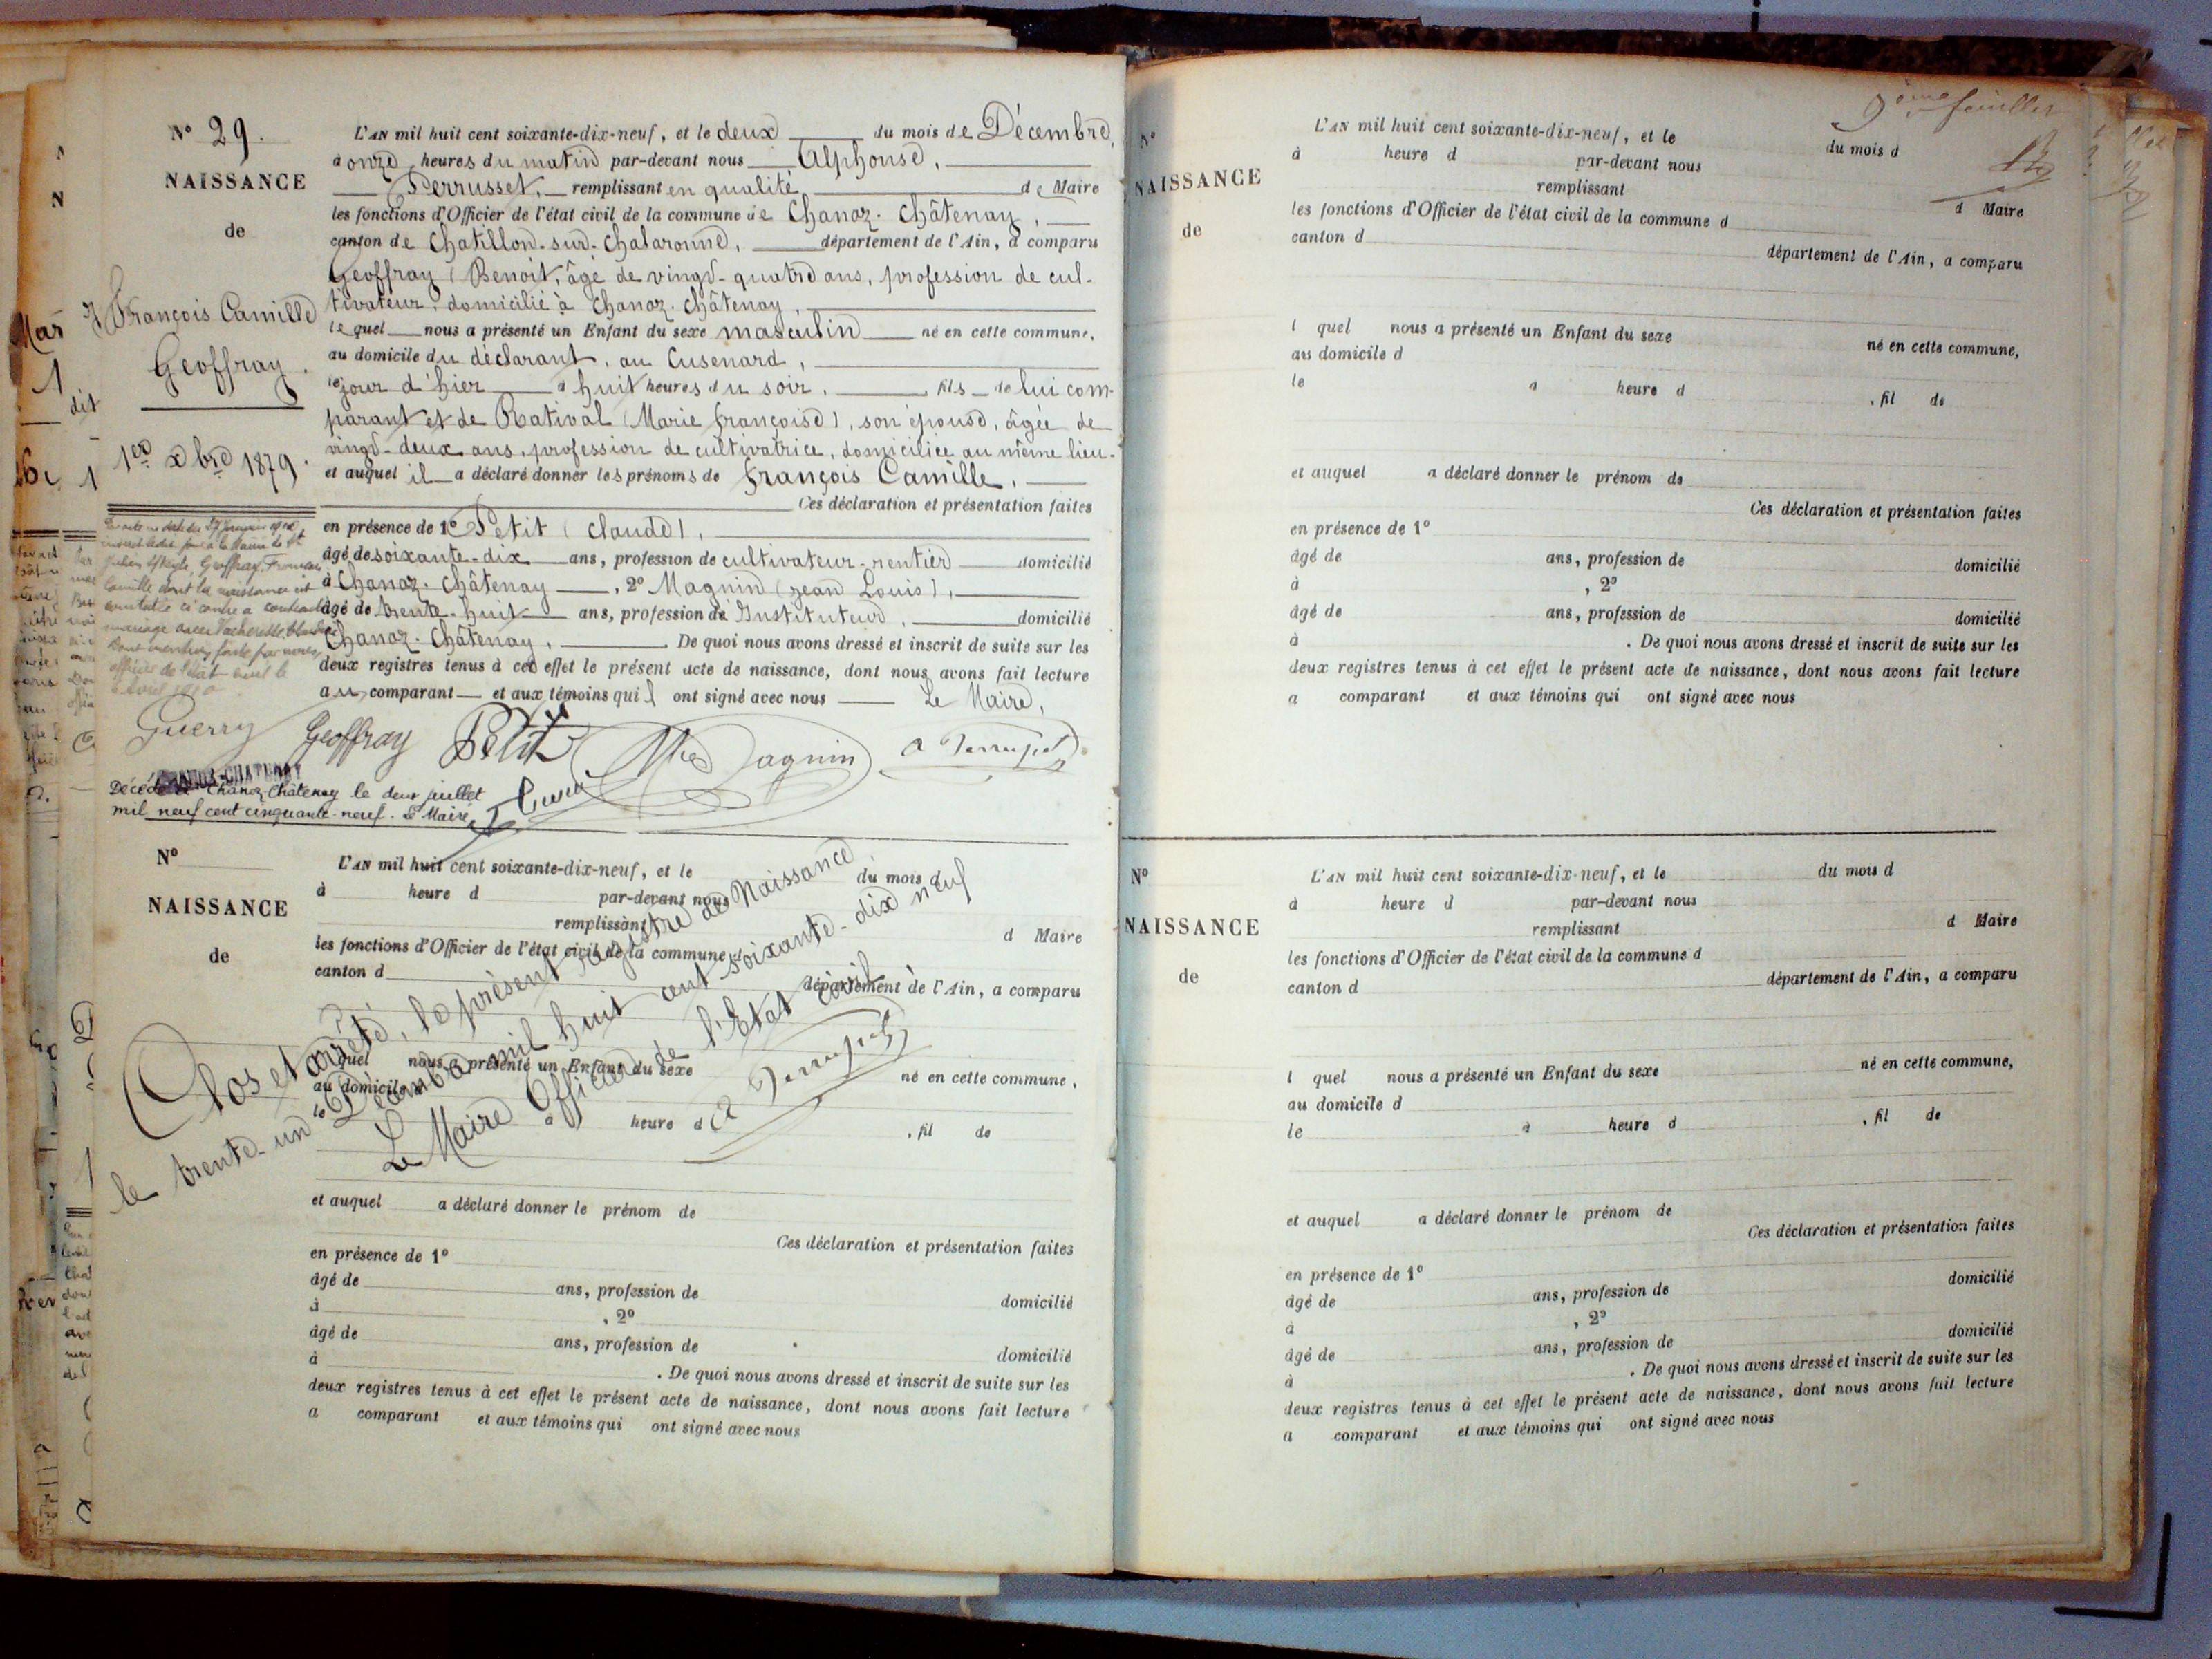 N° 29.
NAISSANCE
de
François Camille
Geoffray.
1er Xbre 1879.
L'AN mil huit cent soixante-dix-neuf, et le deux du mois de Décembre,
à onze heures du matin par-devant nous Alphonse,
Perrusset, remplissant en qualité de Maire
les fonctions d'Officier de l'état civil de la commune de Chanoz-Châtenay,
canton de Chatillon-sur-Chalaronne, département de l'Ain, a comparu
Geoffray (Benoit, âgé de vingt-quatre ans, profession de cul-
tivateur, domicilié à Chanoz-Châtenay,
lequel nous a présenté un Enfant du sexe masculin né en cette commune,
au domicile du déclarant, au Cusenard,
le jour d'hier à huit heures du soir, fils de lui com-
parant et de Ratival (Marie françoise), son épouse, âgée de
vingt-deux ans, profession de cultivatrice, domiciliée au même lieu-
et auquel il a déclaré donner les prénoms de françois Camille,
Ces déclaration et présentation faites
en présence de 1° Petit (Claude),
âgé de soixante-dix ans, profession de cultivateur-rentier domicilié
à Chanoz-Châtenay, 2° Magnin (Jean Louis),
âgé de trente-huit ans, profession de Instituteur, domicilié
Chanoz-Châtenay, De quoi nous avons dressé et inscrit de suite sur les
deux registres tenus à cet effet le présent acte de naissance, dont nous avons fait lecture
au comparant et aux témoins qui ont signé avec nous Le Maire,
mariage avec
officier de l'état civil le
Guerry Geoffray Petit Magnin
CHANOZ-CHATENAY
Décédé à Chanoz-Châtenay le deux juillet
mil neuf cent cinquante-neuf. Le Maire,
N°
NAISSANCE
de
L'AN mil huit cent soixante-dix-neuf, et le du mois d
à heure d par-devant nous
remplissant d Maire
les fonctions d'Officier de l'état civil de la commune d
canton d département de l'Ain, a comparu
l quel nous a présenté un Enfant du sexe né en cette commune,
au domicile d
le à heure d , fil de
et auquel a déclaré donner le prénom de
Ces déclaration et présentation faites
en présence de 1°
âgé de ans, profession de domicilié
à , 2°
âgé de ans, profession de domicilié
à . De quoi nous avons dressé et inscrit de suite sur les
deux registres tenus à cet effet le présent acte de naissance, dont nous avons fait lecture
a comparant et aux témoins qui ont signé avec nous
Clos et arrêté, le présent registre de Naissance,
le trente-un Décembre mil huit cent soixante-dix neuf
Le Maire Officier de l'Etat civil
9ème feuillet
N°
NAISSANCE
de
L'AN mil huit cent soixante-dix-neuf, et le du mois d
à heure d par-devant nous
remplissant d Maire
les fonctions d'Officier de l'état civil de la commune d
canton d département de l'Ain, a comparu
l quel nous a présenté un Enfant du sexe né en cette commune,
au domicile d
le à heure d , fil de
et auquel a déclaré donner le prénom de
Ces déclaration et présentation faites
en présence de 1°
âgé de ans, profession de domicilié
à , 2°
âgé de ans, profession de domicilié
à . De quoi nous avons dressé et inscrit de suite sur les
deux registres tenus à cet effet le présent acte de naissance, dont nous avons fait lecture
a comparant et aux témoins qui ont signé avec nous
N°
NAISSANCE
de
L'AN mil huit cent soixante-dix-neuf, et le du mois d
à heure d par-devant nous
remplissant d Maire
les fonctions d'Officier de l'état civil de la commune d
canton d département de l'Ain, a comparu
l quel nous a présenté un Enfant du sexe né en cette commune,
au domicile d
le à heure d , fil de
et auquel a déclaré donner le prénom de
Ces déclaration et présentation faites
en présence de 1°
âgé de ans, profession de domicilié
à , 2°
âgé de ans, profession de domicilié
à . De quoi nous avons dressé et inscrit de suite sur les
deux registres tenus à cet effet le présent acte de naissance, dont nous avons fait lecture
a comparant et aux témoins qui ont signé avec nous